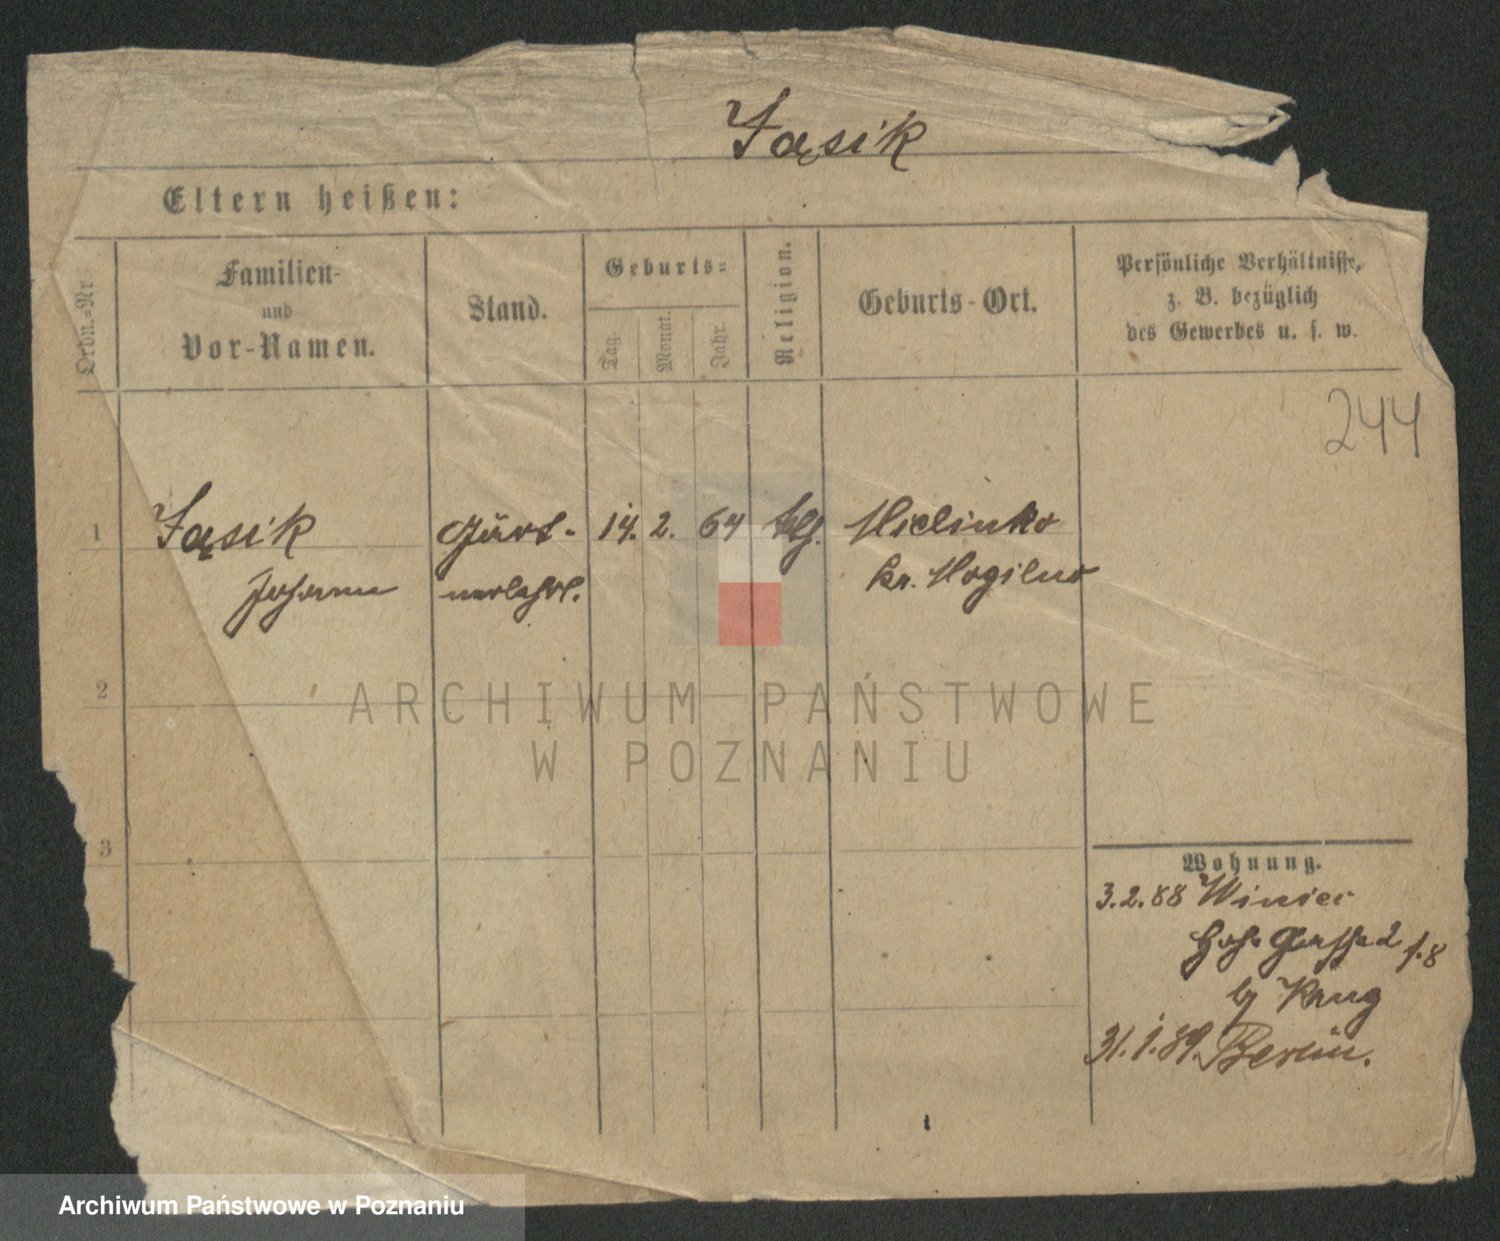 Jąsik
Eltern heißen:
Ordn.-Nr
Familien-
und
Vor-Namen.
Stand.
Geburts-
Tag.
Monat.
Jahr.
Religion.
Geburts-Ort.
Persönliche Verhältnisse,
z. B. bezüglich
des Gewerbes u. s. w.
244
1 Jąsik Gärt- 14. 2. 64 Mielinko
Johann nerlehrl. kr. Mogilno
2
3
Wohnung.
3.2.88 Winiec
Hohe Gasse 2
by Krug
31.1.89. Berlin.
ARCHIWUM PAŃSTWOWE
W POZNANIU
Archiwum Państwowe w Poznaniu